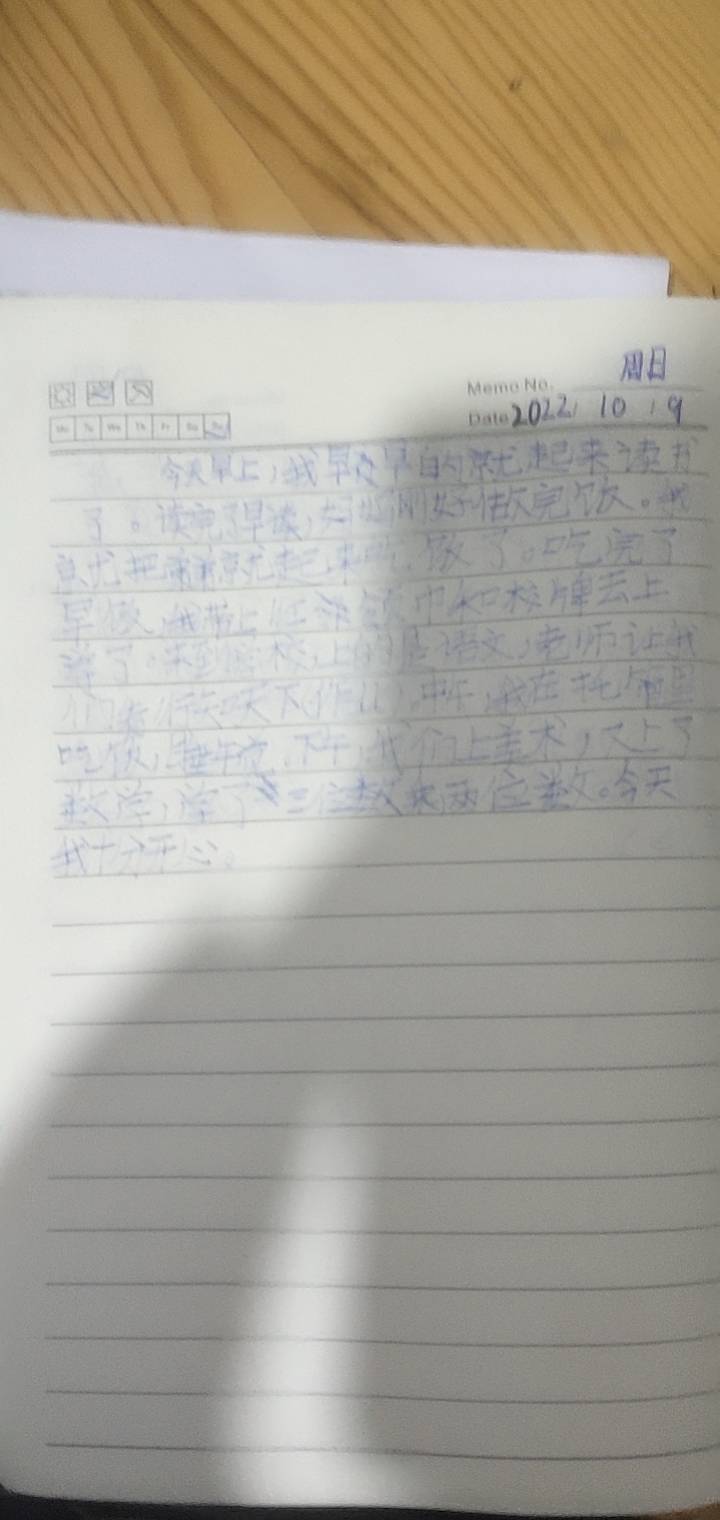 周日
Memo No.
Date 2022 / 10 / 9
Mo Tu We Th Fr Sa Su
今天早上,我早早的就起来读书
了。读完了早读,刚好做完饭。我
就把就起来吃饭了。吃完了
早饭,我带上红领巾和校牌去上
学了。来到学校,上的是语文,老师让我
们做天下,中午,我在托管里
吃饭,睡午觉,下午,我们上美术,又上了
数学,学了三位数乘两位数。今天
我十分开心。